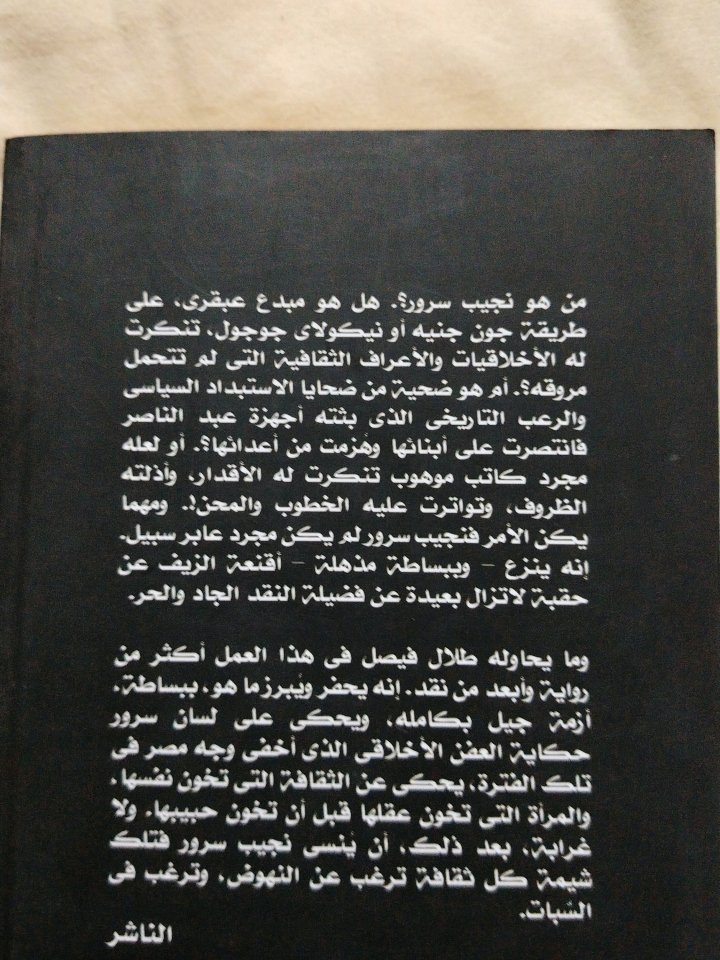 من هو نجيب سرور؟. هل هو مبدع عبقرى، على
طريقة جون جنيه أو نيكولاى جوجول، تنكرت
له الأخلاقيات والأعراف الثقافية التى لم تتحمل
مروقه؟. أم هو ضحية من ضحايا الاستبداد السياسى
والرعب التاريخى الذى بثته أجهزة عبد الناصر
فانتصرت على أبنائها وهُزمت من أعدائها؟. أو لعله
مجرد كاتب موهوب تنكرت له الأقدار، وأذلته
الظروف، وتواترت عليه الخطوب والمحن!. ومهما
يكن الأمر فنجيب سرور لم يكن مجرد عابر سبيل.
إنه ينزع – وببساطة مذهلة – أقنعة الزيف عن
حقبة لاتزال بعيدة عن فضيلة النقد الجاد والحر.
وما يحاوله طلال فيصل فى هذا العمل أكثر من
رواية وأبعد من نقد. إنه يحفر ويُبرز ما هو، ببساطة،
أزمة جيل بكامله، ويحكى على لسان سرور
حكاية العفن الأخلاقى الذى أخفى وجه مصر فى
تلك الفترة، يحكى عن الثقافة التى تخون نفسها،
والمرأة التى تخون عقلها قبل أن تخون حبيبها. ولا
غرابة، بعد ذلك، أن يُنسى نجيب سرور فتلك
شيمة كل ثقافة ترغب عن النهوض، وترغب فى
السُبات.
الناشر